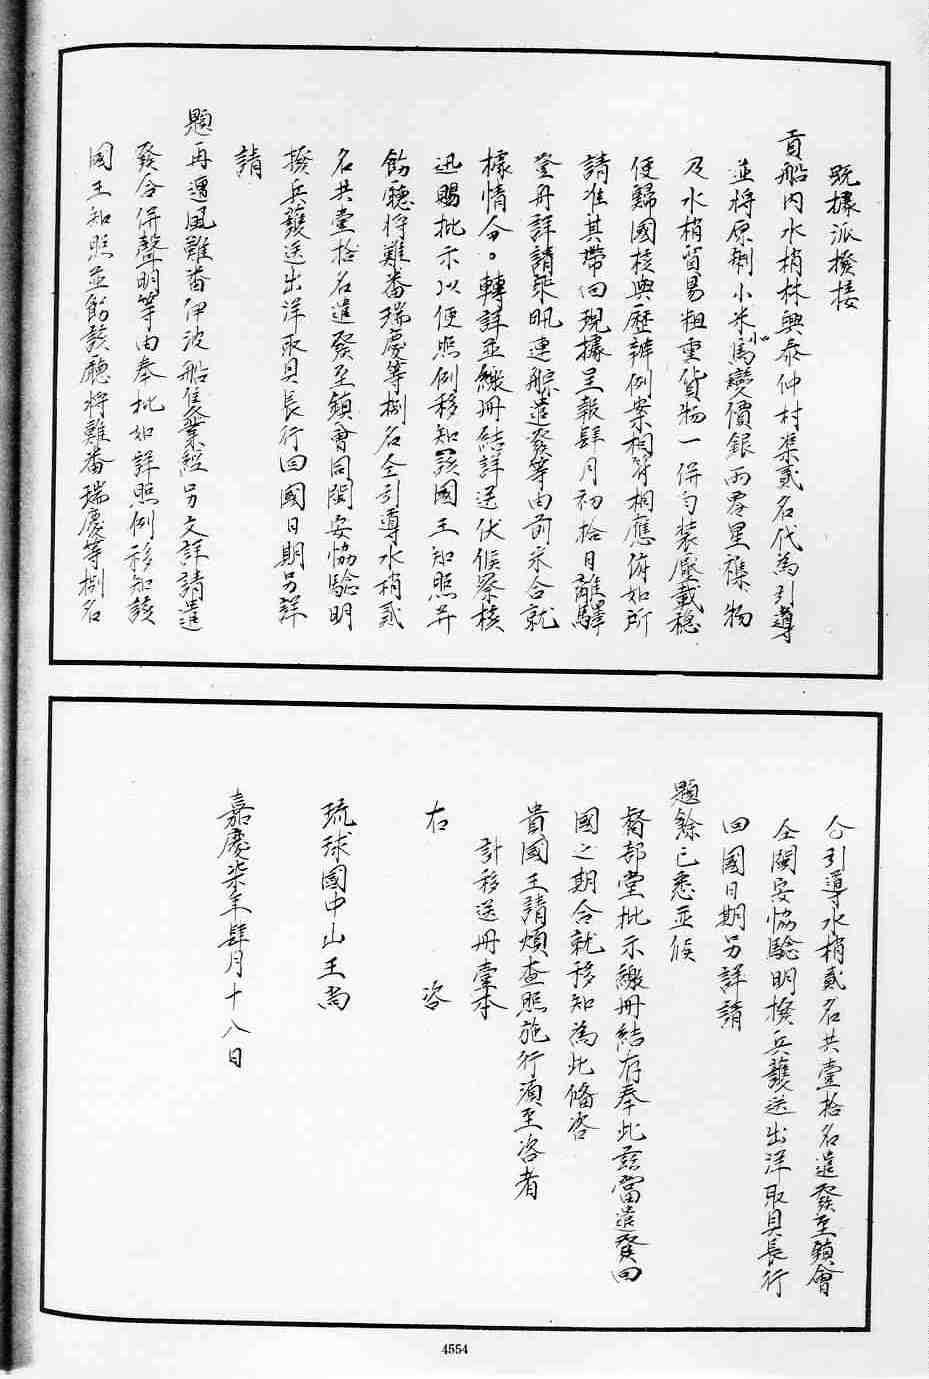 既據派撥接
貢船内水梢林興泰仲村渠貳名代為引導
並將原剩小米馬變價銀兩零星襍物
及水梢貿易粗重貨物一併匀装壓載穏
便歸國核與歷辦例案相符相應俯如所
請准其帶回現據呈報肆月初拾日離驛
登舟詳請乗帆連䑸遣發等由前来合就
據情全。轉詳並繳冊結詳送伏候察核
迅賜批示以便照例移知該國王知照并
飭聽將難番瑞慶等捌名仝引導水梢貳
名共壹拾名遣發至鎮會同閩安協驗明
撥兵護送出洋取具長行回國日期另詳
請
題再遭風難番伊波船隻業經另文詳請遣
發合併聲明等由奉批如詳照例移知該
國王知照並飭該廳將難番瑞慶等捌名
仝引導水梢貳名共壹拾名遣發至鎮會
仝閩安協驗明撥兵護送出洋取具長行
回國日期另詳請
題餘已悉並候
督部堂批示繳冊結存奉此玆當遣發回
國之期合就移知為此俻咨
貴國王請煩查照施行湏至咨者
計移送冊壹本
右 咨
琉球國中山王尚
嘉慶柒年肆月十八日
4554